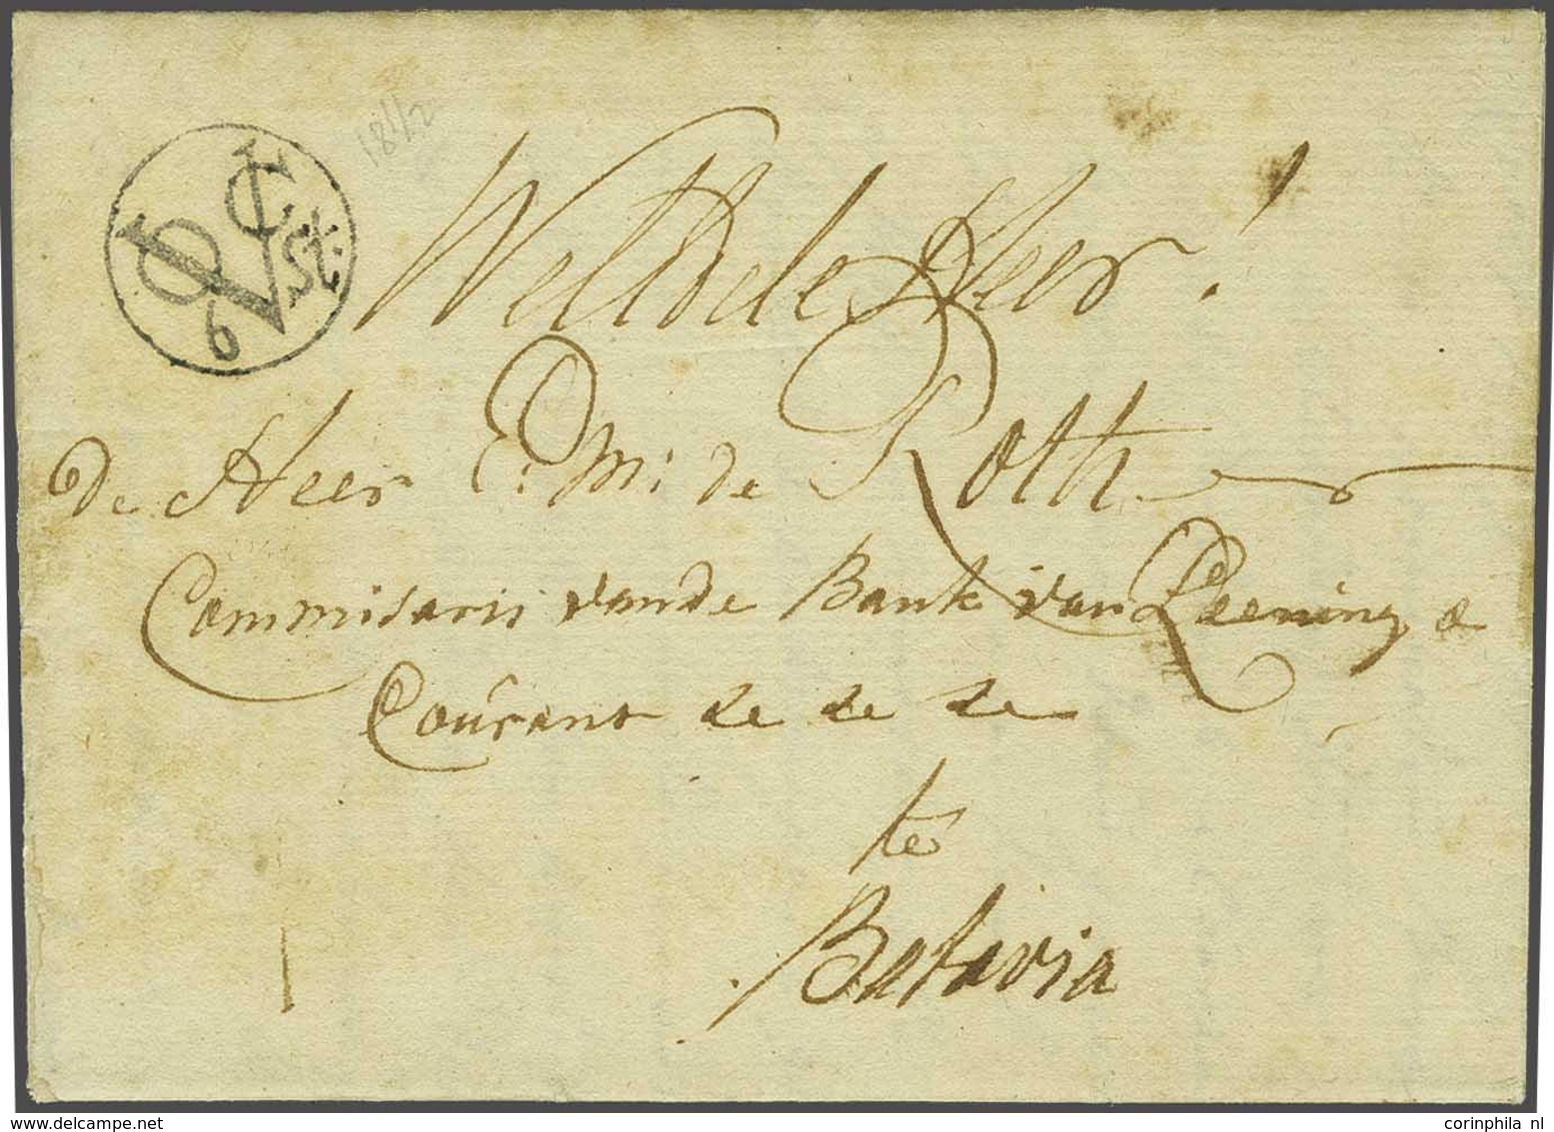 VOC
6 St:
18 1/2
WelEdele Heer!
de Heer E: M: de Roth
Commisaris vande Bank van Leening &
Courant de de de
te
Batavia
corinphila nl